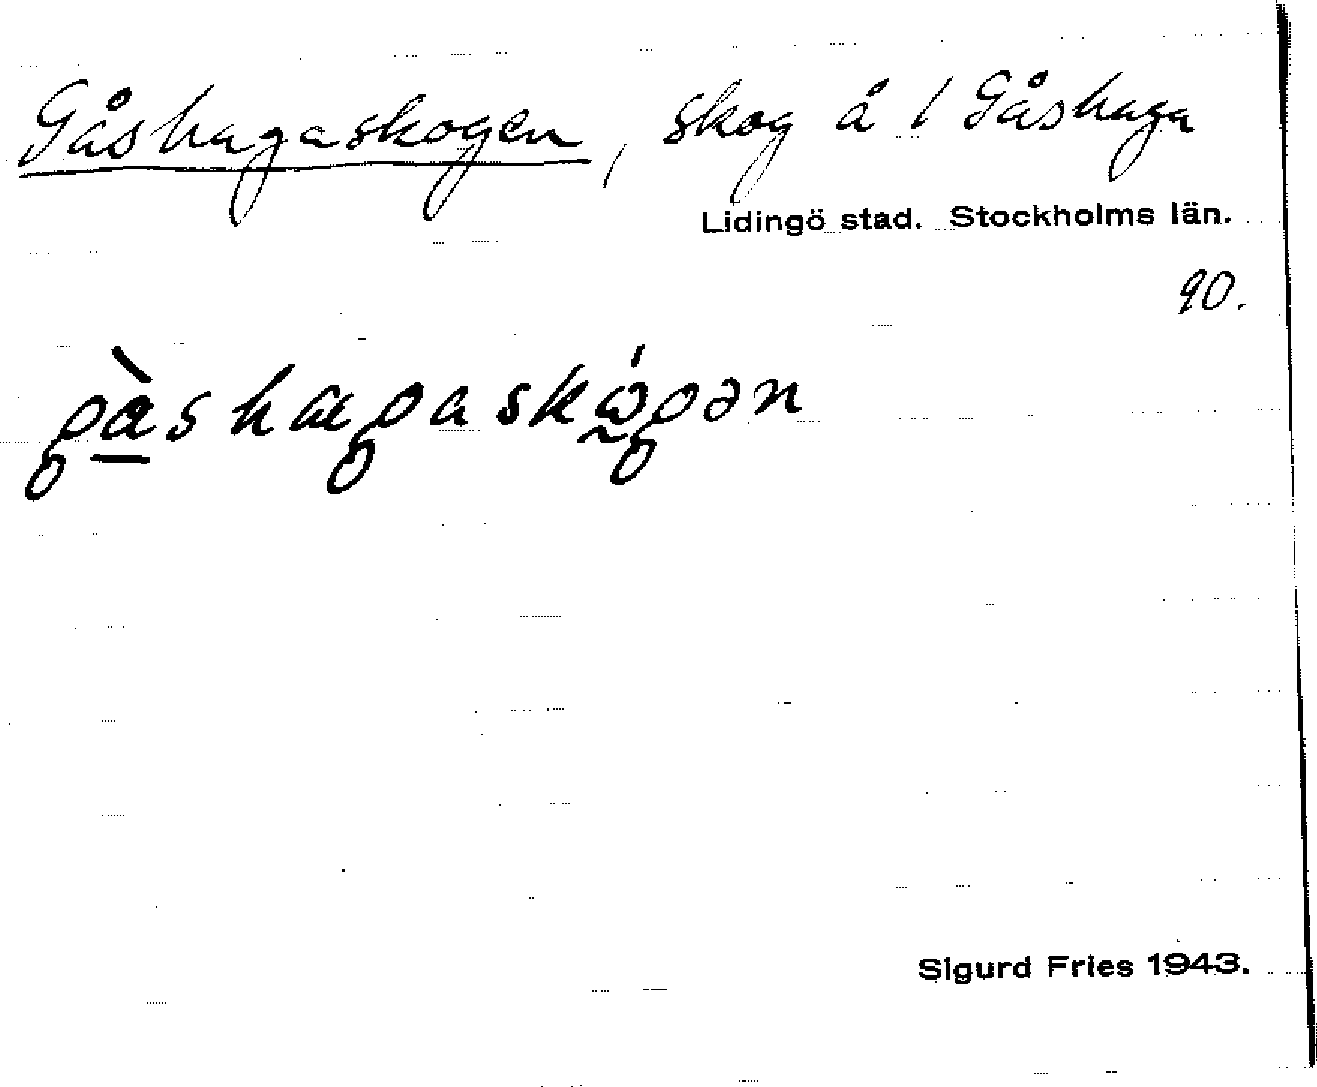 Gåshagaskogen, skog å 1 Gåshaga
Lidingö stad. Stockholms län.
90.
gàshagaskógən
Sigurd Fries 1943.